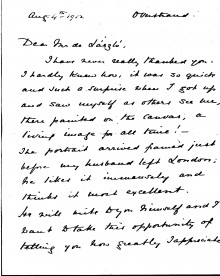 Aug 4th 1912 Overstrand
Dear Mr de László,
I have never really thanked you.
I hardly knew how, it was so quick
and such a surprise when I got up
and saw myself as others see me,
there painted on the canvas, a
living image for all time! —
The portrait arrived framed just
before my husband left London;
he likes it immensely and
thinks it most excellent.
He will write to you himself and I
want to take this opportunity of
telling you how greatly I appreciate